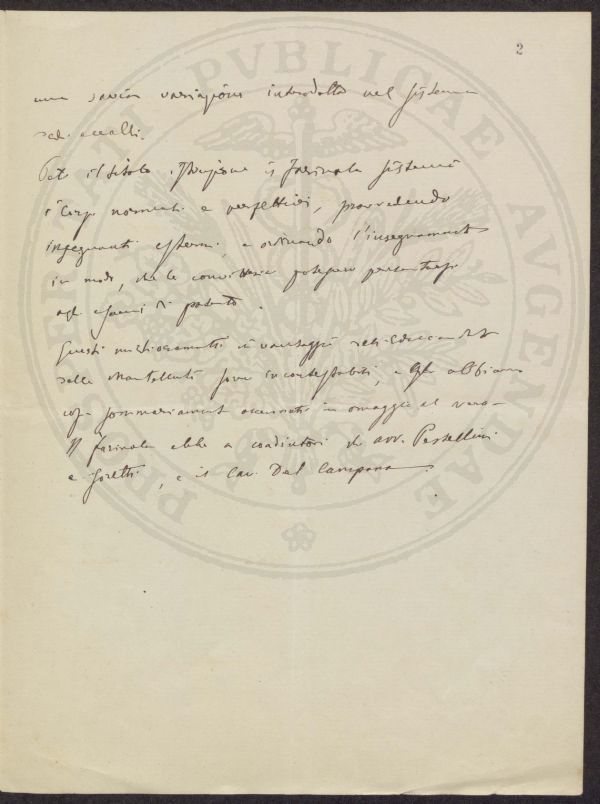 2
una savia variazione introdotta nel sistema
degli
Per il titolo Istruzione il Farinola sistemò
i Corpi normali e perfettivi, provvedendo
insegnanti esterni, e ordinando l'insegnamento
in modo, che le convittrici potessero presentarsi
agli esami di patente.
Questi miglioramenti in vantaggio dell'Educandato
delle Montalve sono incontestabili, e gli abbiamo
così sommariamente accennati in omaggio al vero.
Il Farinola ebbe a coadiutori gli avv. Pestellini
e , e il Cav. Del Campana.
PUBLICAE
AUGENDAE